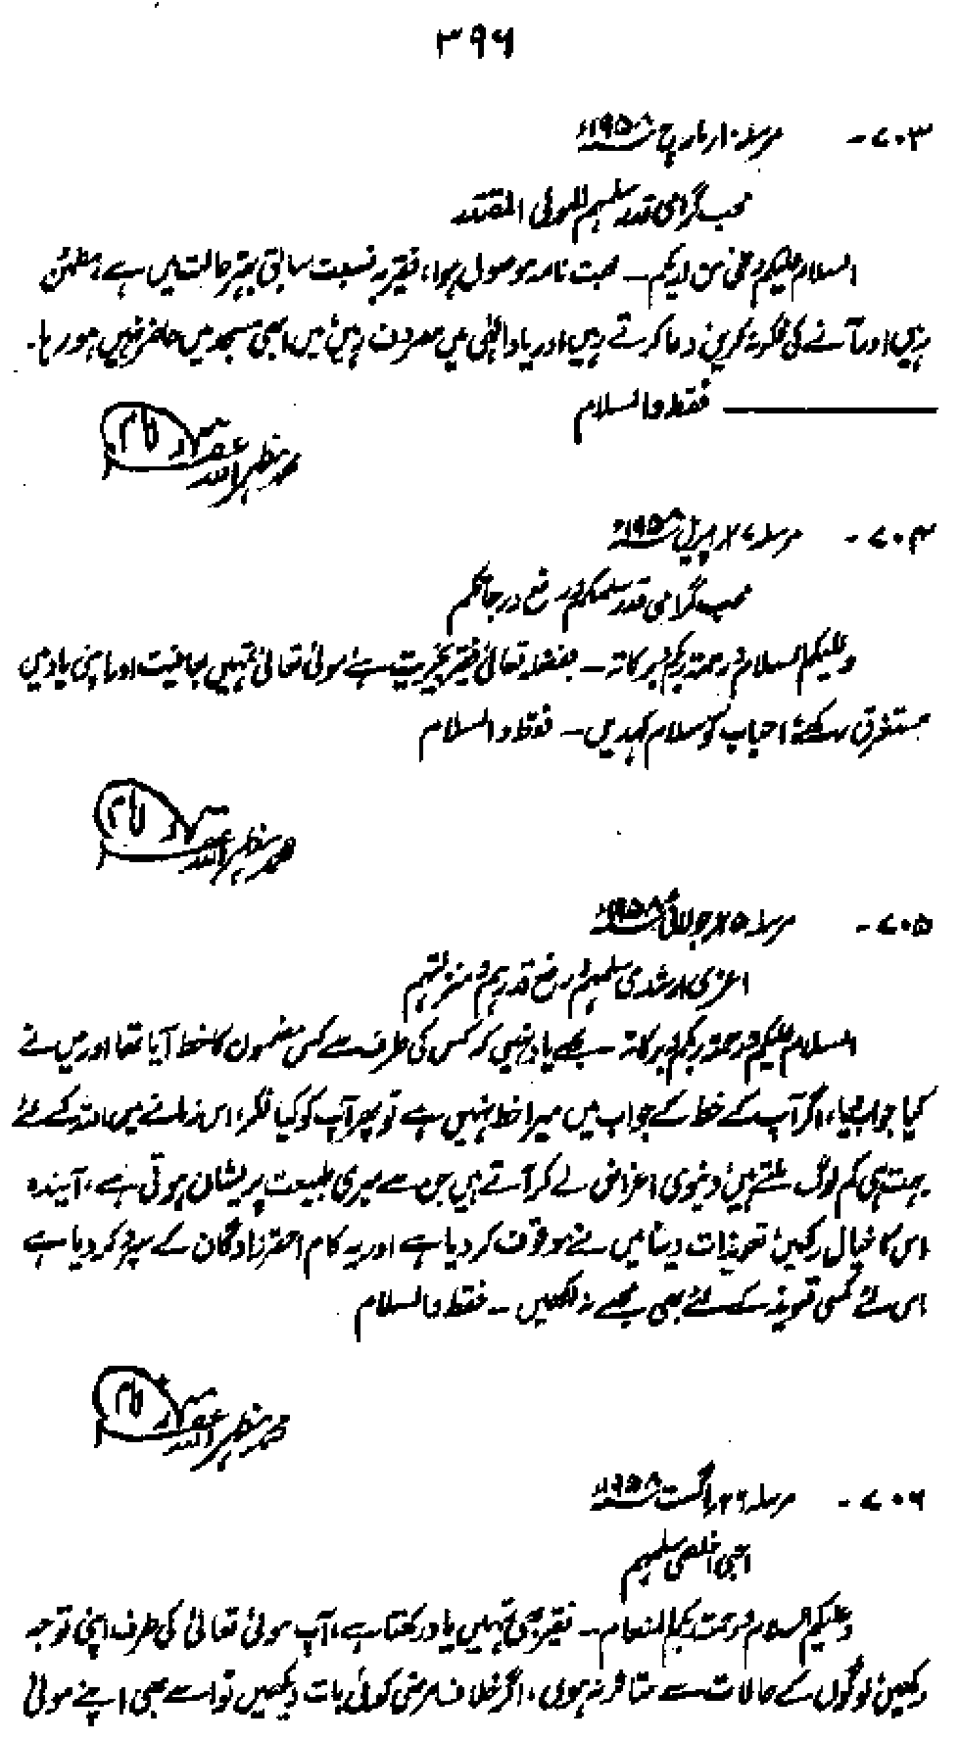 ۳۹۶
۷۰۳- مرسلہ ۱۰ مارچ ۱۹۵۸ء
محب گرامی قدر سلمہم المولی المقتدر
السلام علیکم وعلیٰ من لدیکم – محبت نامہ موصول ہوا، فقیر بہ نسبت سابق بہتر حالت میں ہے، مطمئن
رہیں اور آنے کی فکر نہ کریں، دعا کرتے رہیں اور یاد الٰہی میں مصروف رہیں، میں ابھی مسجد میں حاضر نہیں ہو رہا۔
فقط والسلام
محمد مظہر اللہ
۷۰۴- مرسلہ ۲۷ اپریل ۱۹۵۸ء
محب گرامی قدر سلمکم ورفع درجاتکم
وعلیکم السلام ورحمۃ ربکم وبرکاتہ – بفضلہ تعالیٰ فقیر بخیریت ہے، مولیٰ تعالیٰ تمہیں بعافیت اور اپنی یاد میں
مستغرق رکھے، احباب کو سلام کہدیں – فقط والسلام
محمد مظہر اللہ
۷۰۵- مرسلہ ۲۵ جولائی ۱۹۵۸ء
اعزی ارشدی سلمہم ورفع قدرہم ومنزلتہم
السلام علیکم ورحمۃ ربکم وبرکاتہ – مجھے یاد نہیں کہ کس کی طرف سے کس مضمون کا خط آیا تھا اور میں نے
کیا جواب دیا، اگر آپ کے خط کے جواب میں میرا خط نہیں ہے تو پھر آپ کو کیا فکر، اس زمانے میں اللہ کے لئے
بہت ہی کم لوگ ملتے ہیں، دنیوی اغراض لے کر آتے ہیں جن سے میری طبیعت پریشان ہوتی ہے، آیندہ
اس کا خیال رکھیں، تعویذات دینا میں نے موقوف کر دیا ہے اور یہ کام احقر زادگان کے سپرد کر دیا ہے
اس لئے کسی تعویذ کے لئے بھی مجھے نہ لکھیں – فقط والسلام
محمد مظہر اللہ
۷۰۶- مرسلہ ۲۶ اگست ۱۹۵۸ء
اجی اخلصی سلمہم
وعلیکم السلام ورحمۃ ربکم المنعام – فقیر بھی تمہیں یاد رکھتا ہے، آپ مولیٰ تعالیٰ کی طرف اپنی توجہ
رکھیں، لوگوں کے حالات سے متاثر نہ ہوں، اگر خلاف مرضی کوئی بات دیکھیں تو اسے بھی اپنے مولیٰ